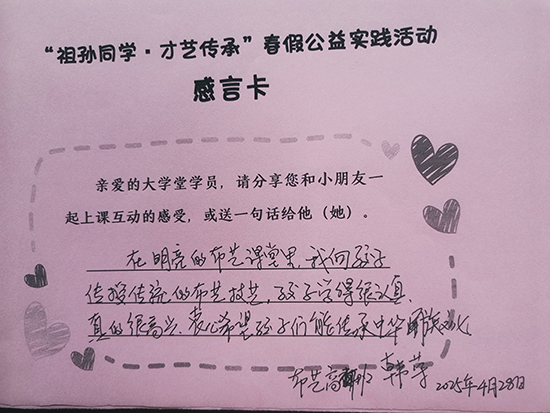 “祖孙同学·才艺传承”春假公益实践活动
感言卡
亲爱的大学堂学员，请分享您和小朋友一
起上课互动的感受，或送一句话给他（她）。
在明亮的布艺课堂里，我向孩子
传授传统的布艺技艺，孩子学得很认真，
真的很高兴。衷心希望孩子们能传承中华民族文化
布艺高班 韩萍
2025年4月28日